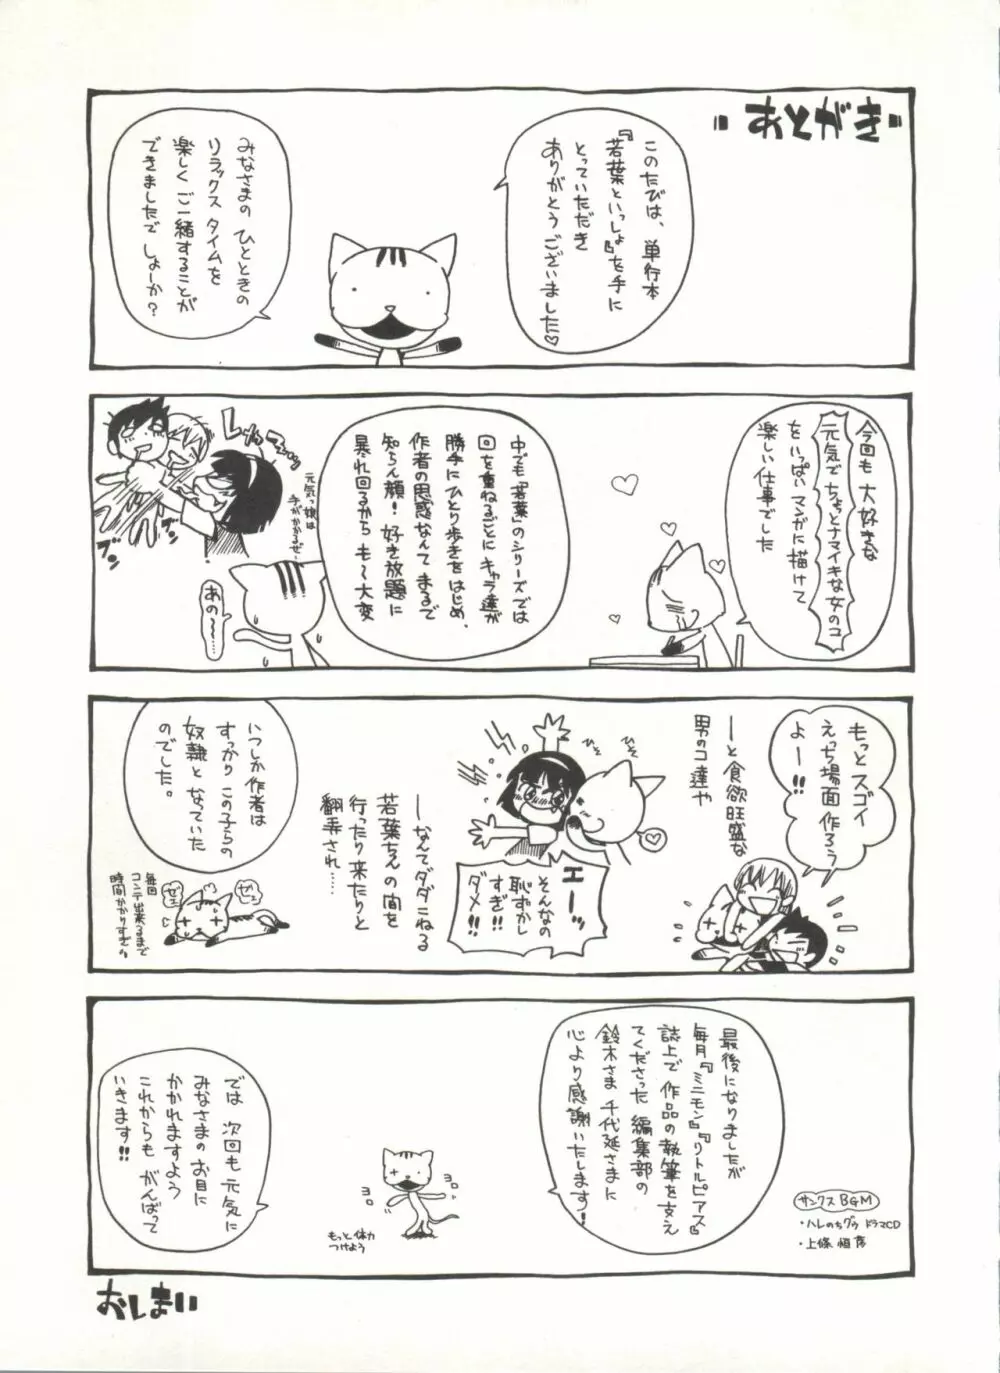 "あとがき"
このたびは、単行本
『若葉といっしょ』を手に
とっていただき
ありがとうございました♡
みなさまの ひとときの
リラックス タイムを
楽しく ご一緒することが
できましたで しょーか？
今回も 大好きな
元気で ちょっとナマイキな女のコ
を いっぱい マンガに 描けて
楽しい仕事でした
中でも『若葉』のシリーズでは
回を重ねるごとに キャラ達が
勝手に ひとり歩きをはじめ、
作者の思惑なんて まるで
知らん顔！好き放題に
暴れ回るから も〜大変
元気っ娘は
手がかかるぜ…
ブン
ブン
あの〜…
もっと スゴイ
えっち場面 作ろう
よー!!
――と 食欲旺盛な
男のコ達や
ひそ
ひそ
エーッ
そんなの
恥ずかし
すぎ!!
ダメ!!
――なんて、ダダこねる
若葉ちんの間を
行ったり来たりと
翻弄され……
いつしか 作者は
すっかり この子らの
奴隷と なっていた
のでした。
ゼェ
ゼェ
毎回
コンテ出来るまで
時間かかりすぎ
最後になりましたが
毎月『ミニモン』『リトルピアス』
誌上で 作品の執筆を支え
てくださった 編集部の
鈴木さま 千代延さまに
心より感謝いたします！
サンクスBGM
・ハレのちグゥ ドラマCD
・上條 恒彦
ヨロ
ヨロ
もっと 体力
つけよう
では 次回も 元気に
みなさまの お目に
かかれますよう
これからも がんばって
いきます!!
おしまい